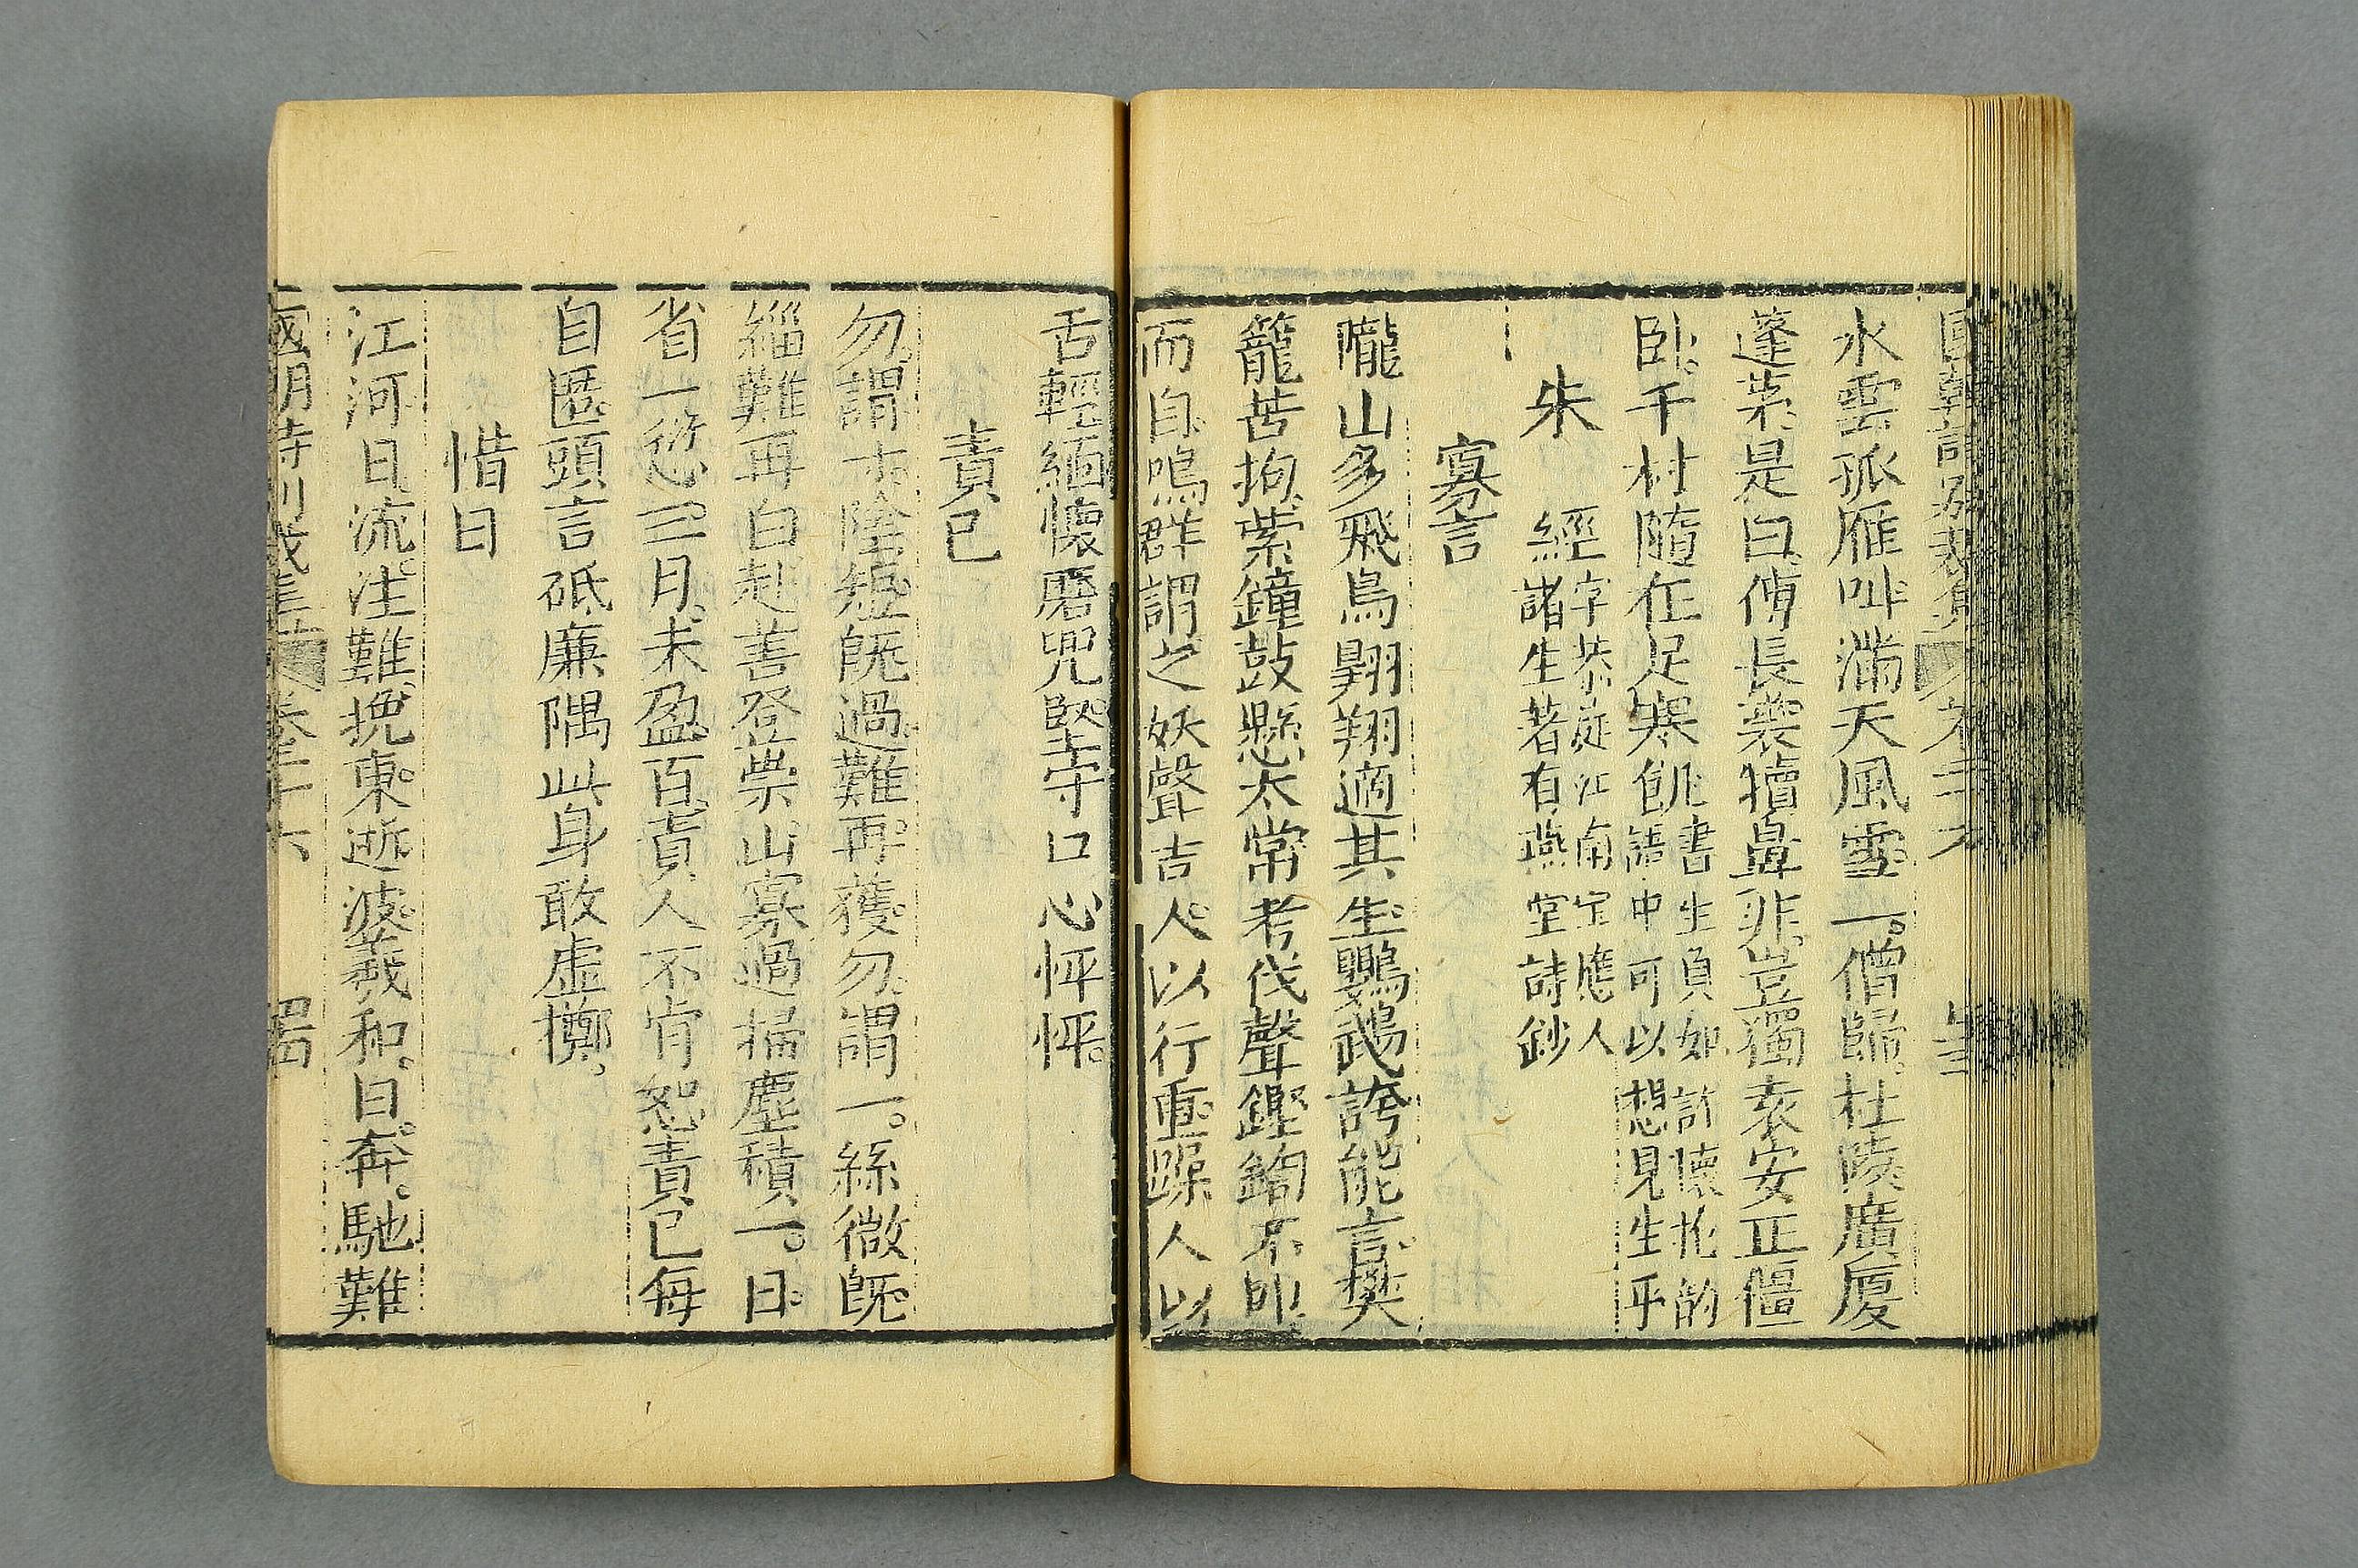 水雲孤雁呌滿天風雪一僧歸杜陵廣廈
蓬萊是白傅長裘犢鼻非豈獨袁安正僵
卧千村隨在足寒飢書生負如許懷抱的
語中可以想見生乎
朱經字恭庭江南宝應人
諸生著有燕堂詩鈔
寡言
隴山多飛鳥翺翔適其生鸚鵡誇能言樊
籠苦拘縈鐘鼓懸太常考伐聲鏗鍧不叩
而自鳴群謂之妖聲吉人以行重躁人以
舌輕緬懷磨兜堅守口心怦怦
責已
勿謂寸陰短旣過難再獲勿謂一絲微旣
緇難再白赴善登崇山寡過掃塵積一日
省一愆三月未盈百責人不肯恕責已每
自匿頭言砥廉隅此身敢虛擲
惜日
江河日流注難挽東逝波羲和日奔馳難
國朝詩別裁集 卷二十六